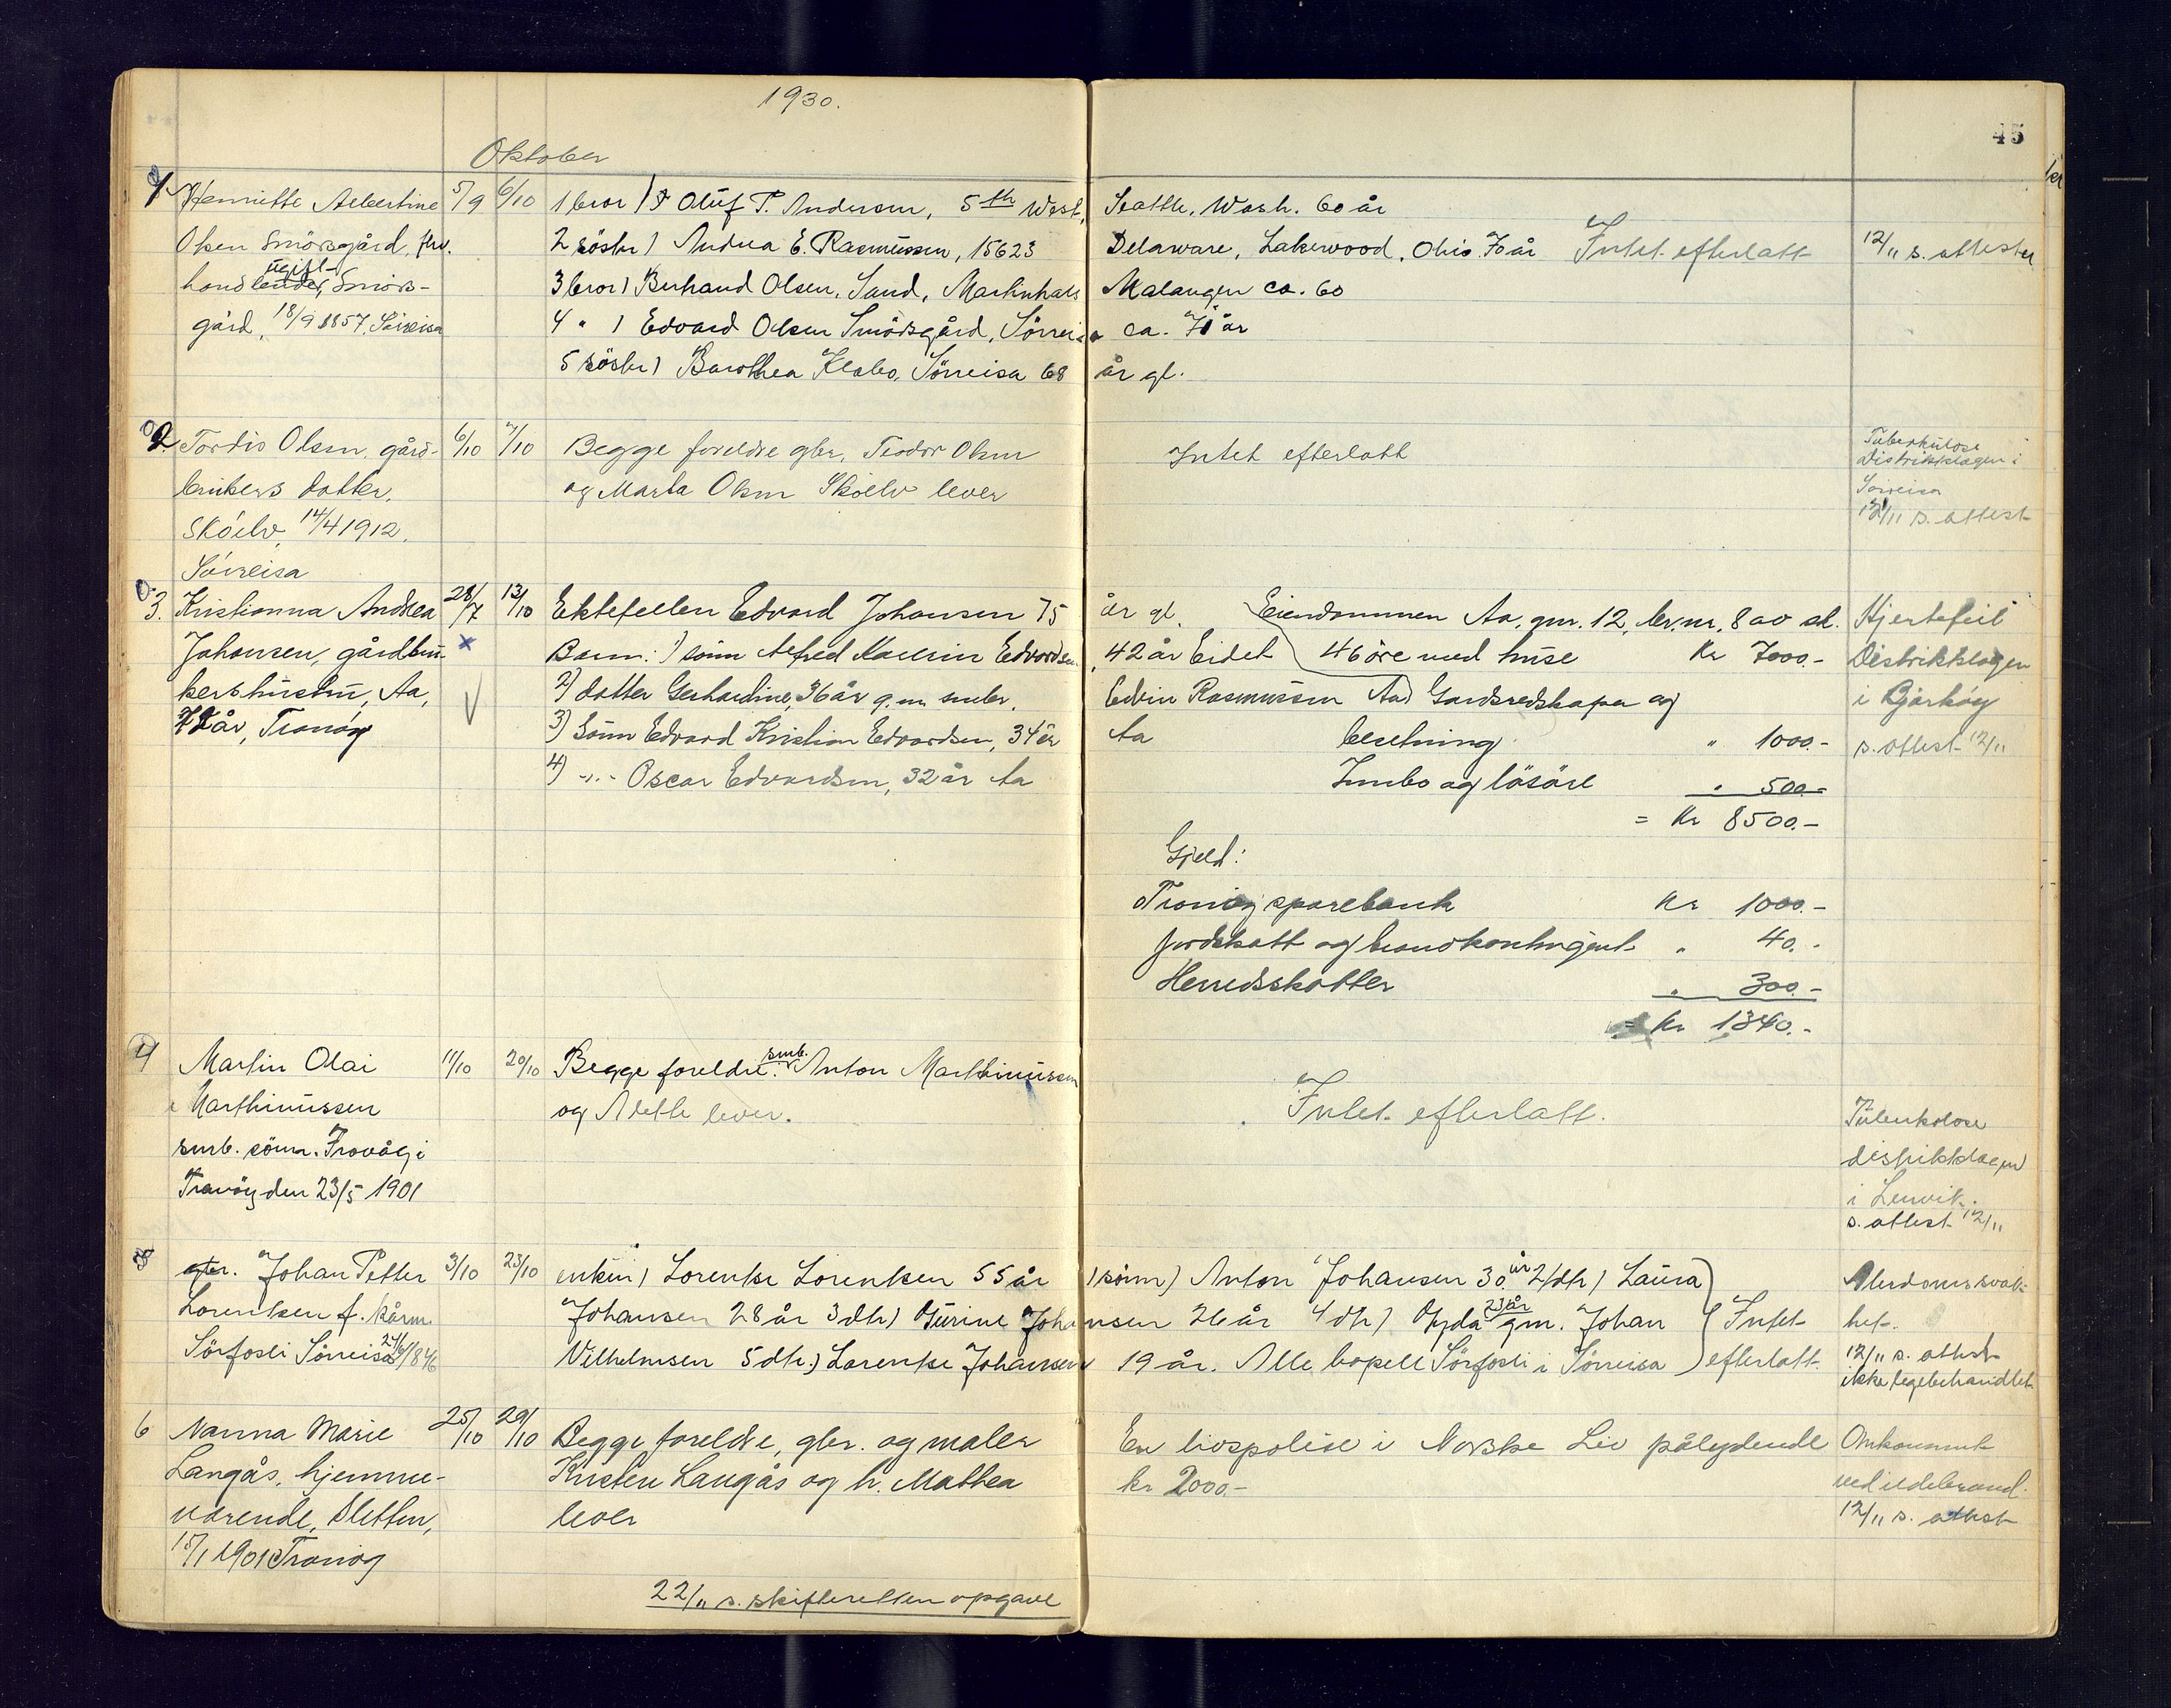 1930.
45
Oktober
1 Henriette Albertine 5/9 6/10 1 bror) Oluf P. Andersen, 5th West, Seattle, Wash. 60 år
Olsen Smörsgård, fhv. 2 söster) Andrea E. Rasmussen, 15623 Delaware, Lakewood, Ohio. 70 år Intet efterlatt 12/11 s. attester
ugift
handlende, Smörs- 3 bror) Berhard Olsen, Sand, Malangen ca. 60
gård, 18/9 1857, Sörreisa 4 " ) Edvard Olsen Smörsgård, Sörreisa ca. 71 år
5 söster) Barothea Klabo, Sörreisa 68 år gl.
2. Tordis Olsen, gård- 6/10 7/10 Begge foreldre gbr. Teodor Olsen Intet efterlatt Tuberkulose
brukers datter, og Marta Olsen Sköelv lever Distriktslagen i
Sköelv, 14/4 1912, Sörreisa
Sörreisa 12/11 s. attest
3. Kristianna Andrea 28/7 13/10 Ektefellen Edvard Johansen 75 år gl. Eiendommen Aa, gnr. 12, br.nr. 8 av sk. Hjertefeil
Johansen, gårdbru- x Barn: 1) sönn Alfred Edvardsen 42 år Eidet 46 öre med huse Kr 7000.- Distriktslægen
kerhustru, Aa, 2) datter Gerhardine, 36 år g.m. smbr. Edvin Rasmussen Aa) Gardsredskaper og i Bjarköy
72 år, Tranöy 3) Sönn Edvard Kristian Edvardsen, 34 år Aa besetning " 1000.- s. attest 12/11
4) -"- Oscar Edvardsen, 32 år Aa Innbo og lösöre " 500.-
= Kr 8500.-
Gjeld:
Tranöy sparebank Kr 1000.-
Jordskatt og brandkontingent " 40.-
Herredsskatter " 300.-
= Kr 1340.-
4 Martin Olai 11/10 20/10 Begge foreldre: smb. Anton Marthinussen
Marthinussen og Adette lever. Intet efterlatt. Tuberkolose
smb. sönn. Frovåg i distriktslægen
Tranöy den 23/5 1901 i Lenvik.
s. attest 12/11
5 gbr. Johan Petter 3/10 23/10 enken) Lorentse Lorentsen 55 år 1 sönn) Anton Johansen 30 år 2/dtr) Laura Alerdomssvak-
Lorentsen f. kårm. Johansen 28 år 3 dtr) Turine Johansen 26 år 4 dtr) Hyda 23 år gm. Johan Intet het.
Sörfosli Sörreisa 24/6 1846 Vilhelmsen 5 dtr.) Lorentse Johansen 19 år. Alle bopell Sörfosli i Sörreisa efterlatt. 12/11 s. attest
ikke legebehandlet
6 Nanna Marie 25/10 29/10 Begge foreldre, gbr. og maler En livspolise i Norske Liv pålydende Omkommet
Langås, hjemme- Kristen Langås og h. Mathea kr 2000.- ved ildebrand.
værende, Sletten, lever 12/11 s. attest
15/1 1901 Tranöy
22/11 s. skifteretten opgave